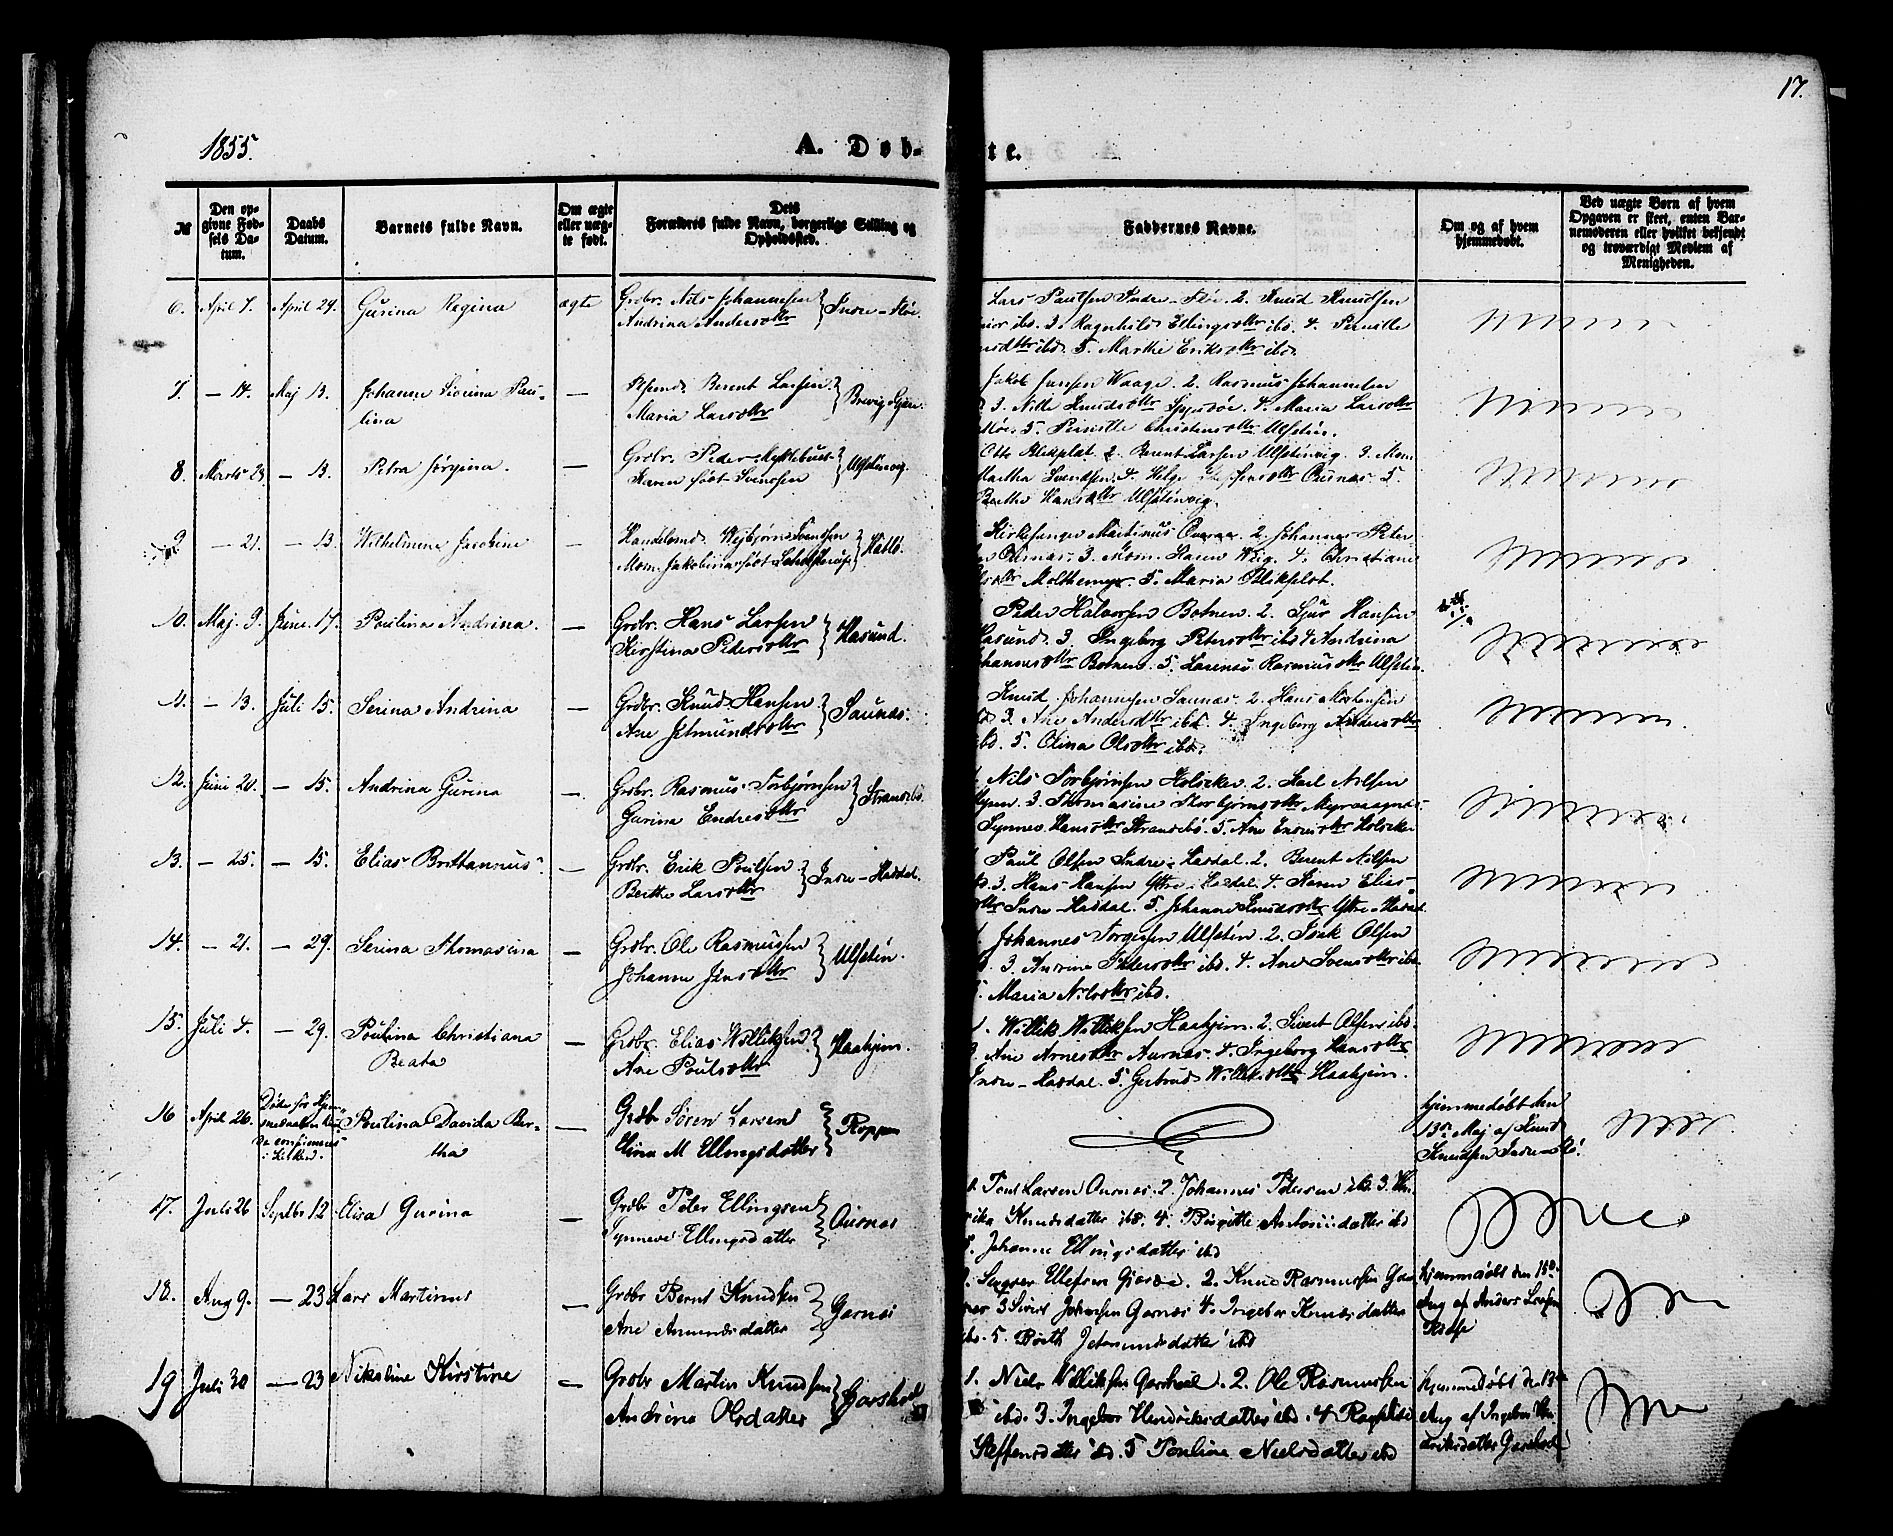 17.
1855.
A. Døb-
te.
№
Den op-
givne Fød-
sels Da-
tum.
Daabs
Datum.
Barnets fulde Navn.
Om ægte
eller uæg-
te født.
Dets
Forældres fulde Navn, borgerlige Stilling og
Opholdssted.
Faddernes Navne.
Om og af hvem
hjemmedøbt.
Ved uægte Børn af hvem
Opgaven er skeet, enten Bar-
nemoderen eller hvilket bekjendt
og troværdigt Medlem af
Menigheden.
6. April 7. April 29. Gurina Regina ægte Grdbr. Nils Johannesen
Andrina Andersdttr Indre-Fløe.
Lars Paulsen Indre-Fløe. 2. Knud Knudsen
ibd. 3. Ragnhild Ellingsdttr ibd. 4. Pernille
ibd. 5. Marthe Eriksdttr ibd.
7. — 14. Maj 13. Johanne Sivrina Pau-
lina — Berent Larsen
Maria Larsdttr
Jakob Jensen Waage. 2. Rasmus Johannesen
3. Nille Knudsdttr 4. Maria Larsdttr
5. Pernille Christensdttr Ulfsten.
8. Marts 23 — 13. Petra Jørgina. — Grdbr. Peder Myklebust
Karen født Svendsen Ulfstenvig.
Otto Blikplat. 2. Berent Larsen Ulfstenvig. 3. Mom.
Martha Svendsen. 4. Helge Ousnas. 5.
Berthe Hansdttr Ulfstenvig.
9 — 21. — 13. Wilhelmine Jacobine — Handelsmd. Svendsen
Mom. Jakobine født Hatlø.
Kirkesanger Martinus 2. Johannes Peter
3. Mom. Karen Wiig. 4. Christiane
5. Maria Blikplat.
10. Maj 9. June 17. Paulina Andrina. — Grdbr. Hans Larsen
Kirstina Pedersdttr Hasund.
Peder Halvorsen Botnen. 2. Sjur Hansen
Hasund. 3. Ingeborg Petersdttr ibd. 4 Andrina
Johannesdttr Botnen. 5. Rasmusdttr Ulfsten.
11. — 13. Juli 15. Serina Andrina — Grdbr. Knud Hansen
Ane Jetmundsdttr Saunas.
Knud Johannesen Saunas. 2. Hans Mortensen
3. Ane Andersdttr ibd. 4. Ingeborg Andersdttr
ibd. 5. Olina Olsdttr ibd.
12. Juni 20. — 15. Andrina Gurina — Grdbr. Rasmus Torbjørnsen
Gurina Endresdttr Strandebø.
Nils Torbjørnsen Holseker. 2. Karl Nilsen
3. Thomasine Thorbjørnsdttr
Synnev Hansdttr Strandebø. 5. Ane Endresdttr Holseker
13. — 25. — 15. Elias Brittannus — Grdbr. Erik Poulsen
Berthe Larsdttr Indre-Hasdal.
Paul Olsen Indre-Hasdal. 2. Berent Nilsen
3. Hans Hansen Yttre-Hasdal. 4. Karen Elias-
dttr Indre-Hasdal. 5. Johanne Knudsdttr Yttre-Hasdal.
14. — 21. — 29. Serina Thomasina — Grdbr. Ole Rasmussen
Johanne Jensdttr Ulfsten.
Johannes Torgersen Ulfsten. 2. Isak Olsen
3. Andrine Pedersdttr ibd. 4. Ane Svensdttr ibd.
5. Maria Nilsdttr ibd.
15. Juli 4. — 29. Poulina Christiana
Beata — Grdbr. Elias Williksen
Ane Poulsdttr Haahjem.
1. Willik Williksen Haahjem. 2. Sivert Olsen ibd.
3. Ane Arnesdttr Aurnas. 4. Ingeborg Hansdttr
Indre-Hasdal. 5. Gertrud Williksdttr Haahjem.
16 April 26. Døde før Hjem-
medaaben kun-
de confirmeres
i Kirken. Poulina Davida Ber-
tha — Grdbr Søren Larsen
Elina M Ellingsdatter Roppen
hjemmedøbt den
13de Maj af Knud
Knudsen Indre-Flø.
17. Juli 26 Septbr 12 Elisa Gurina — Grdbr Peter Ellingsen
Synneve Ellingsdatter Ousnas
1. Poul Larsen Ousnas. 2. Johannes Petersen ibd. 3. Hen-
rika Knudsdatter ibd. 4. Birgitte datter ibd
5. Johanne Ellingsdatter ibd
18. Aug 9. — 23 Lars Martinus — Grdbr Bernt Knudsen
Ane datter Garnes
Ellefsen Gjerde. 2. Knud Rasmussen Gar-
nes 3 Johansen Garnes 4. Ingebor Knudsdatter
ibd. 5. Berith Jetmundsdatter ibd
hjemmedøbt den 15de
Aug af Anders Larsen
19 Juli 30 — 23 Nikoline Kirstine — Grdbr Martin Knudsen
Andrine Olsdatter Garshol
1. Niels Williksen Garshol. 2. Ole Rasmussen
ibd. 3. Ingebor Hendriksdatter ibd. 4 Ragnhild
Steffensdatter ibd. 5 Pouline Nielsdatter ibd
hjemmedøbt d. 13de
Aug af Ingebor Hen-
driksdatter Garshol